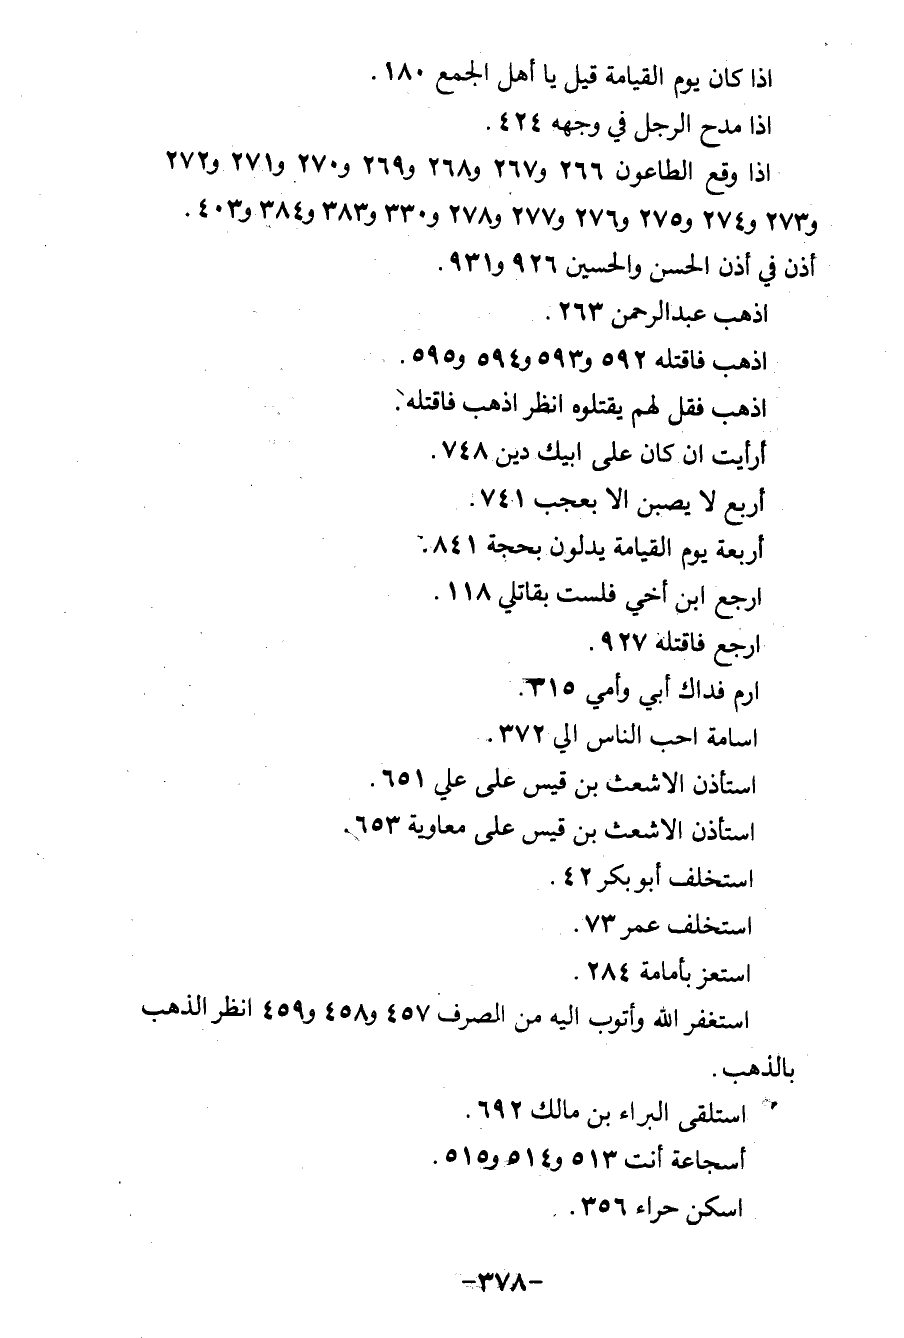 اذا كان يوم القيامة قيل يا أهل الجمع ١٨٠ .
اذا مدح الرجل في وجهه ٤٢٤ .
اذا وقع الطاعون ٢٦٦ و٢٦٧ و٢٦٨ و٢٦٩ و٢٧٠ و٢٧١ و٢٧٢
و٢٧٣ و٢٧٤ و٢٧٥ و٢٧٦ و٢٧٧ و٢٧٨ و٣٣٠ و٣٨٣ و٣٨٤ و٤٠٣ .
أذن في أذن الحسن والحسين ٩٢٦ و٩٣١ .
اذهب عبدالرحمن ٢٦٣ .
اذهب فاقتله ٥٩٢ و٥٩٣ و٥٩٤ و٥٩٥ .
اذهب فقل لهم يقتلوه انظر اذهب فاقتله .
أرأيت ان كان على ابيك دين ٧٤٨ .
أربع لا يصبن الا بعجب ٧٤١ .
أربعة يوم القيامة يدلون بحجة ٨٤١ .
ارجع ابن أخي فلست بقاتلي ١١٨ .
ارجع فاقتله ٩٢٧ .
ارم فداك أبي وأمي ٣١٥ .
اسامة احب الناس الي ٣٧٢ .
استأذن الاشعث بن قيس على علي ٦٥١ .
استأذن الاشعث بن قيس على معاوية ٦٥٣ .
استخلف أبو بكر ٤٢ .
استخلف عمر ٧٣ .
استعز بأمامة ٢٨٤ .
استغفر الله وأتوب اليه من الصرف ٤٥٧ و٤٥٨ و٤٥٩ انظر الذهب
بالذهب .
استلقى البراء بن مالك ٦٩٢ .
أسجاعة أنت ٥١٣ و٥١٤ و٥١٥ .
اسكن حراء ٣٥٦ .
-٣٧٨-